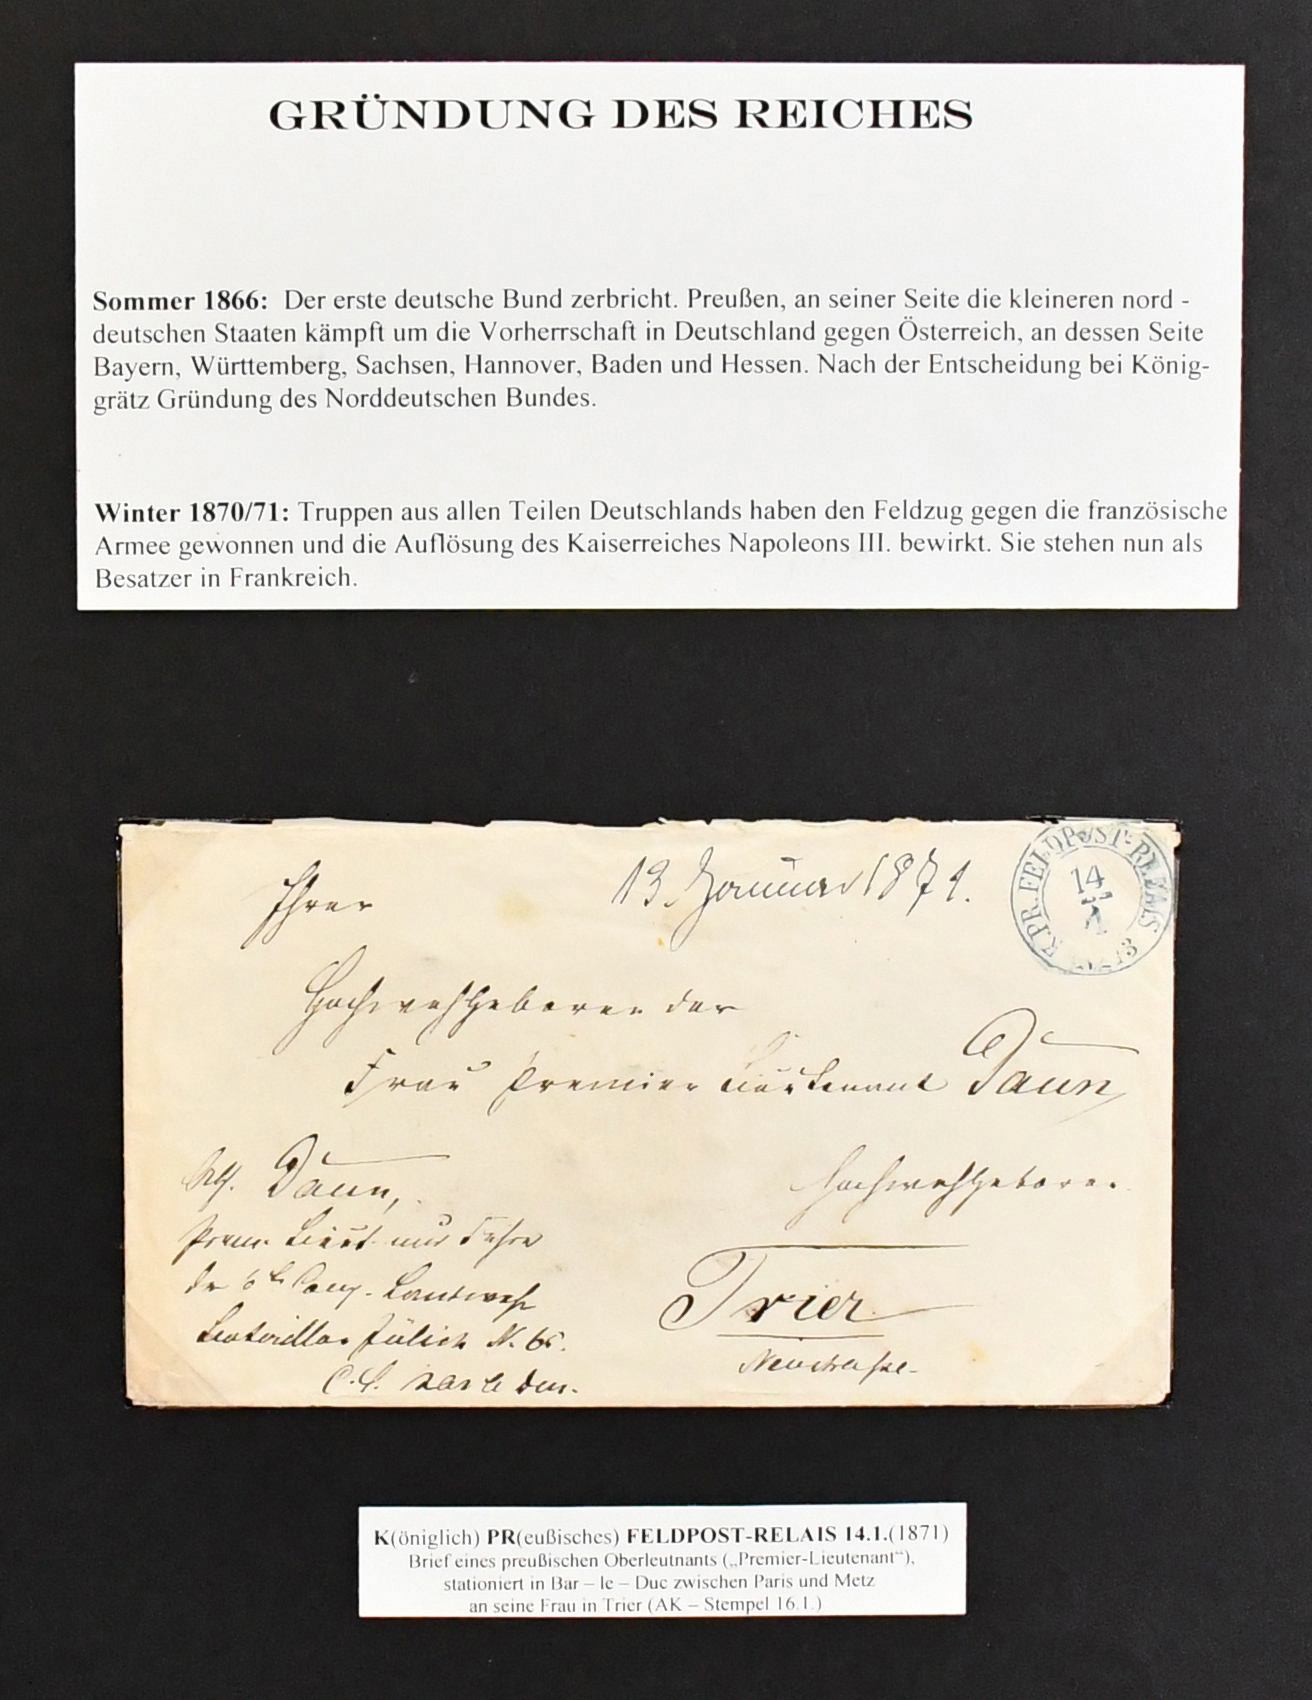 GRÜNDUNG DES REICHES
Sommer 1866: Der erste deutsche Bund zerbricht. Preußen, an seiner Seite die kleineren nord -
deutschen Staaten kämpft um die Vorherrschaft in Deutschland gegen Österreich, an dessen Seite
Bayern, Württemberg, Sachsen, Hannover, Baden und Hessen. Nach der Entscheidung bei König-
grätz Gründung des Norddeutschen Bundes.
Winter 1870/71: Truppen aus allen Teilen Deutschlands haben den Feldzug gegen die französische
Armee gewonnen und die Auflösung des Kaiserreiches Napoleons III. bewirkt. Sie stehen nun als
Besatzer in Frankreich.
13. Januar 1871.
K.PR.FELDPOST-RELAIS
14
1
Ihrer
Hochwohlgeboren der
Frau Premier Lieutenant Daun
Hochwohlgeboren
Trier
Neustraße
Daun,
Prem. Lieut. und
der 6t Comp. Landwehr
Bataillon Jülich N. 65.
K(öniglich) PR(eußisches) FELDPOST-RELAIS 14.1.(1871)
Brief eines preußischen Oberleutnants („Premier-Lieutenant“),
stationiert in Bar – le – Duc zwischen Paris und Metz
an seine Frau in Trier (AK – Stempel 16.1.)